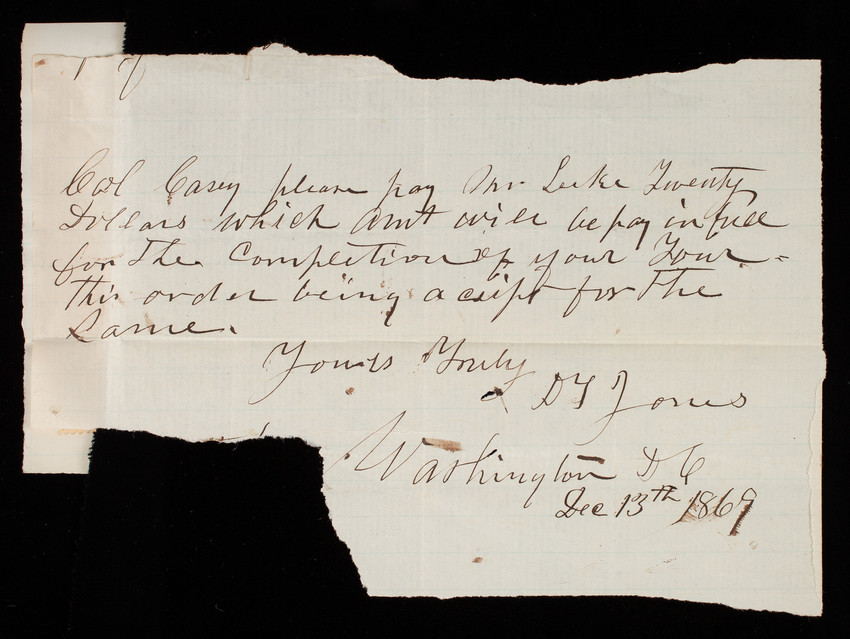 Col Casey please pay Mr Leeke Twenty
Dollars which amt will be pay in full
for The Completion of your Tour -
this order being a ceipt for The
Same.
Yours Truly
D T Jones
Washington D C
Dec 13th 1869